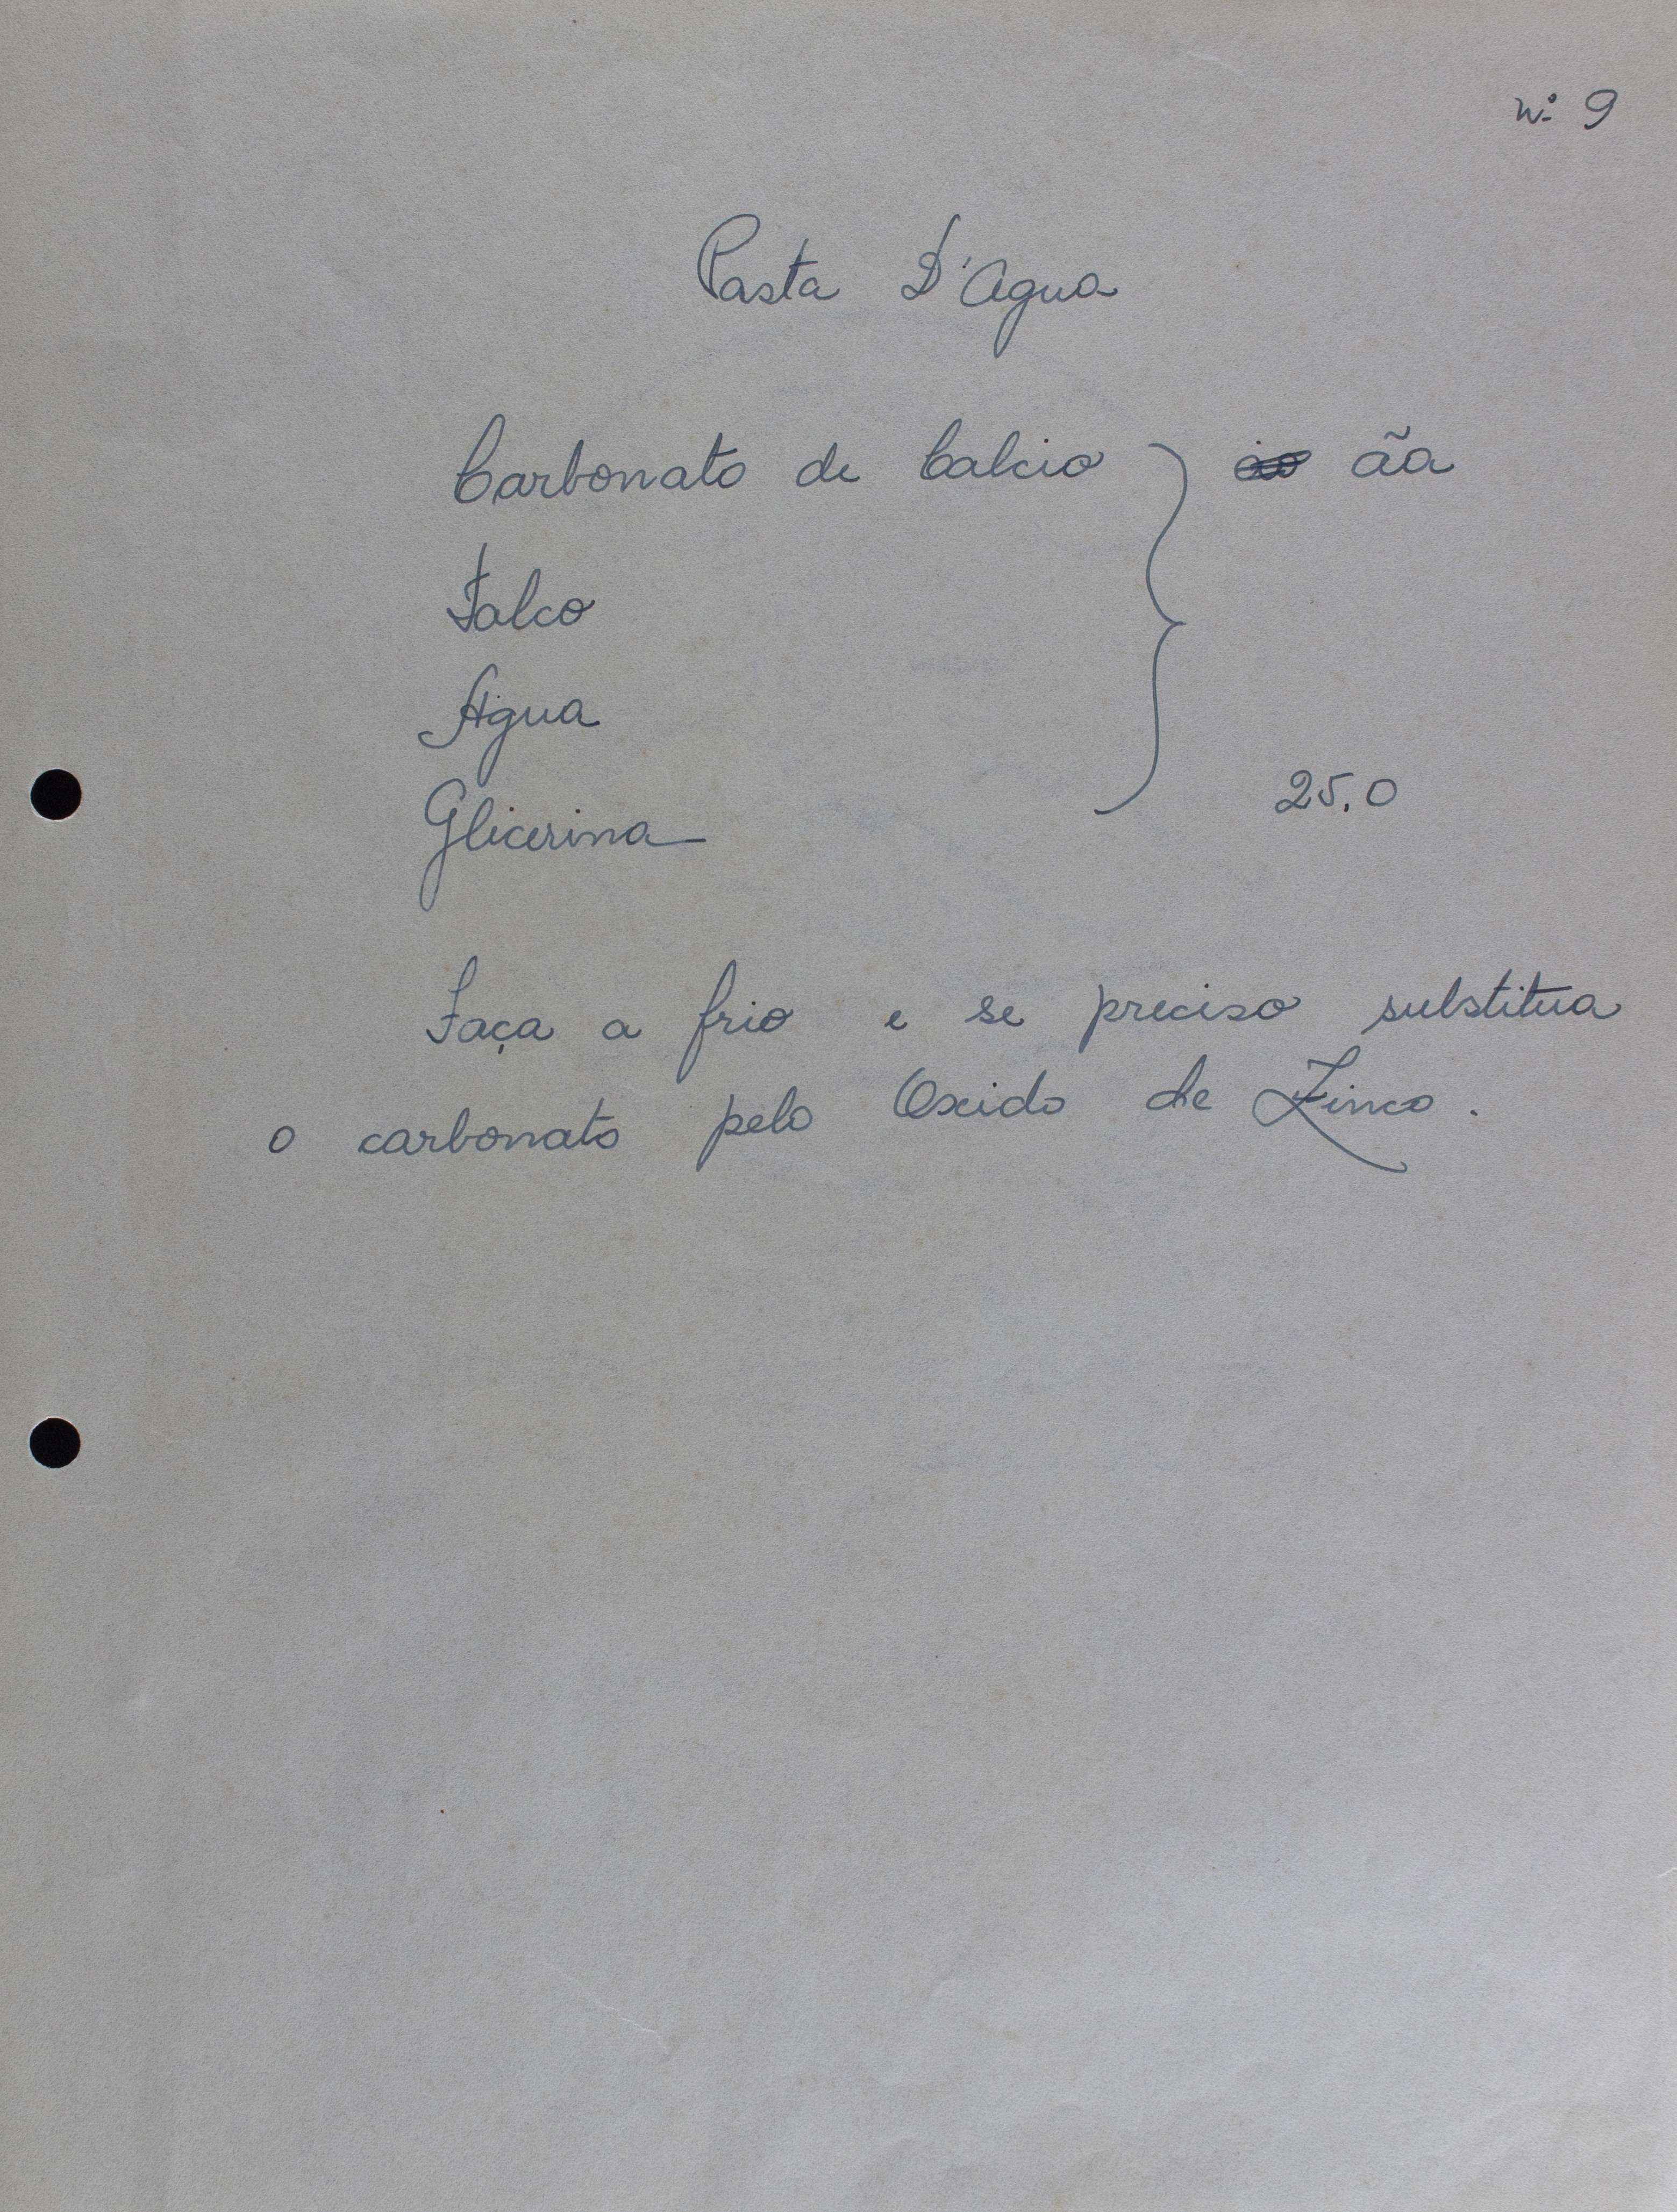 nº 9
Pasta D'Agua
Carbonato de Calcio } ãa
Talco
Agua
Glicerina 25.0
Faça a frio e se preciso substitua
o carbonato pelo Oxido de Zinco.